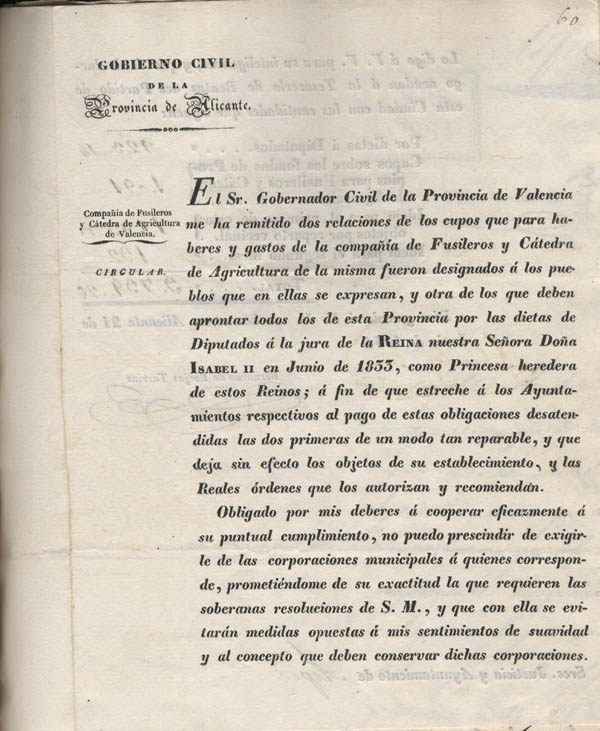 60
GOBIERNO CIVIL
DE LA
Provincia de Alicante.
Compañia de Fusileros
y Cátedra de Agricultura
de Valencia.
CIRCULAR.
El Sr. Gobernador Civil de la Provincia de Valencia
me ha remitido dos relaciones de los cupos que para ha-
beres y gastos de la compañía de Fusileros y Cátedra
de Agricultura de la misma fueron designados á los pue-
blos que en ellas se expresan, y otra de los que deben
aprontar todos los de esta Provincia por las dietas de
Diputados á la jura de la REINA nuestra Señora Doña
ISABEL II en Junio de 1833, como Princesa heredera
de estos Reinos; á fin de que estreche á los Ayunta-
mientos respectivos al pago de estas obligaciones desaten-
didas las dos primeras de un modo tan reparable, y que
deja sin efecto los objetos de su establecimiento, y las
Reales órdenes que los autorizan y recomiendan.
Obligado por mis deberes á cooperar eficazmente á
su puntual cumplimiento, no puedo prescindir de exigir-
le de las corporaciones municipales á quienes correspon-
de, prometiéndome de su exactitud la que requieren las
soberanas resoluciones de S. M., y que con ella se evi-
tarán medidas opuestas á mis sentimientos de suavidad
y al concepto que deben conservar dichas corporaciones.